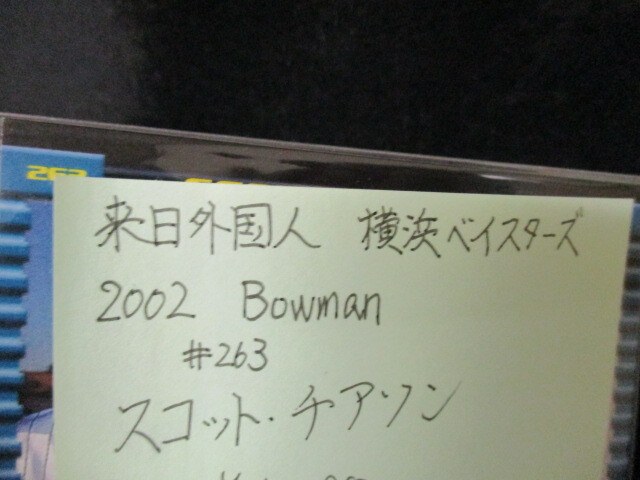 263
来日外国人 横浜ベイスターズ
2002 Bowman
#263
スコット・チアソン